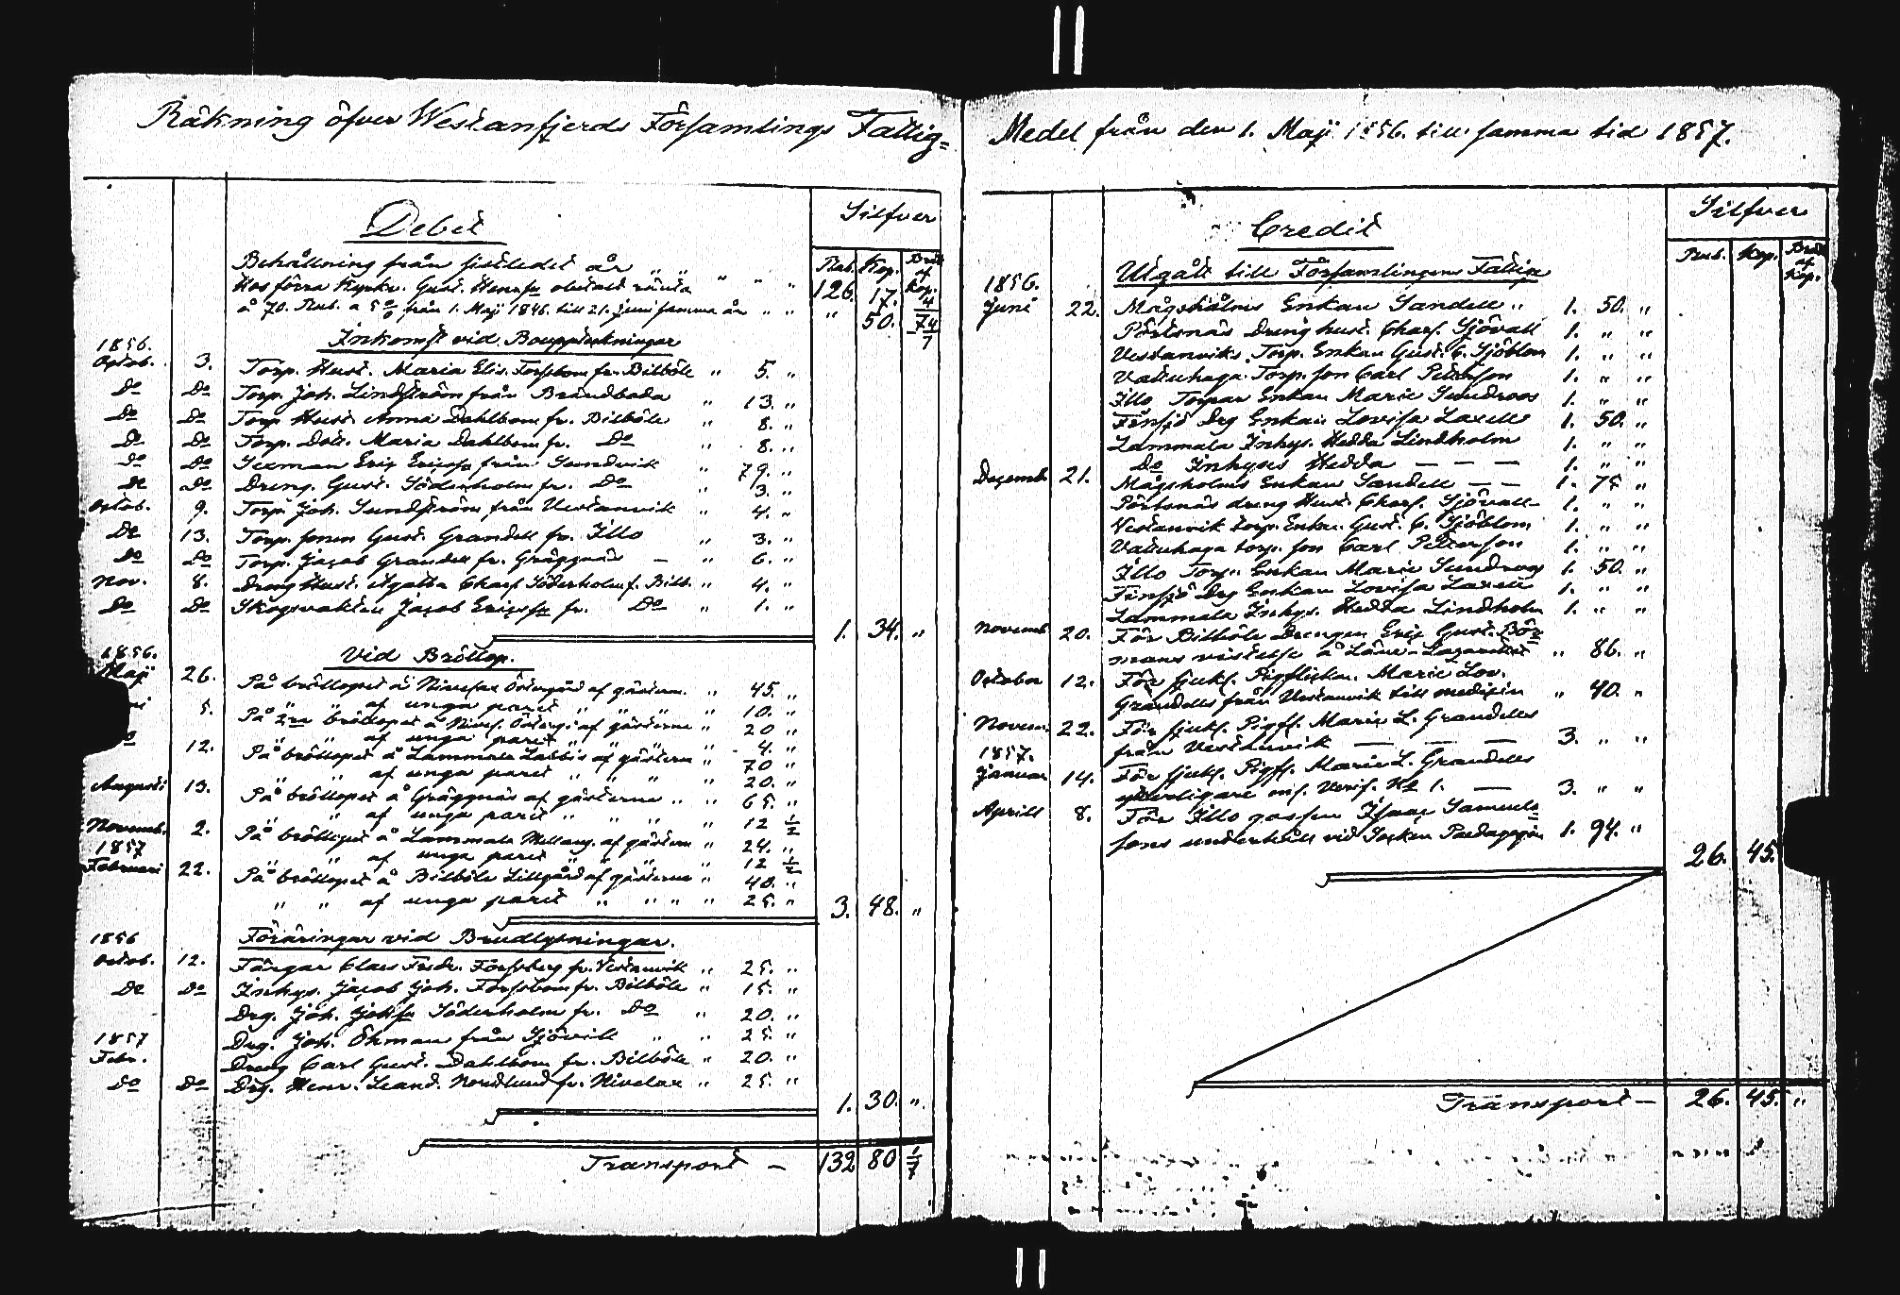 Räkning öfver Westanfjerds Församlings Fattig=
Debet
Silfver
Rub. Kop. Bråk af Kop.
Behållning från sistledet år " " " " " 126. 17. 4/7
Hos förra Kyrkv. Gust. Henrss obetalt ränta
à 70. Rub. a 5 % från 1. Maji 1846. till 21. Juni samma år " " " 50.
Inkomst vid Bouppteckningar
1856.
Octob. 3. Torp. Hust. Maria Elis. Forssbom fr. Bilböle " 5. "
Do Do Torp. Joh. Lindström från Brändboda " 13. "
Do Do Torp Hust. Anna Dahlbom fr. Bilböle " 8. "
Do Do Torp. Dott. Maria Dahlbom fr. Do " 8. "
Do Do Sexman Eric Ericss från Sundvik " 79. "
Do Do Dreng. Gust. Söderholm fr. Do " 3. "
Octob. 9. Torp. Joh. Sundström från Vestanvik " 4. "
Do 13. Torp. sonen Gust. Grandell fr. Illo " 3. "
Do Do Torp. Jacob Grandell fr. Gräggnäs – " 6. "
Nov. 8. Dreng Hust. Agatha Charl. Söderholm f. Bilb. " 4. "
Do Do Skogsvakten Jacob Ericss fr. Do " 1. "
1. 34. "
Vid Bröllop.
1856.
Maji 26. På bröllopet å Nivelax Östergård af gästerna " 45. "
" " af unga paret " " " " 10. "
5. På 2ra bröllopet å Nivel. Österg. af gästerne " 20 "
" " af unga paret " " " " 4. "
12. På bröllopet å Lammala Labbis af gästerna " 70 "
" " af unga paret " " " " 20. "
Augusti 13. På bröllopet å Gräggnäs af gästerne " " 65. "
" " af unga paret " " " " 12 1/2
Novemb. 2. På bröllopet å Lammala Mellang. af gästerna " 24. "
" " af unga paret " " " " 12 1/2
1857
Februari 22. På bröllopet å Bilböle Lillgård af gästerne " 40. "
" " af unga paret " " " " 25. "
3. 48. "
Föräringar vid Brudlysningar.
1856
Octob. 12. Färgar Claes Fredr. Forssberg fr. Vestanvik " 25. "
Do Do Inhys. Jacob Joh. Forssbom fr. Bilböle " 15. "
Drg. Joh. Johss Söderholm fr. Do " 20. "
1857 Drg. Joh. Öhman från Sjövik " " 25. "
Febr. Dreng Carl Gust. Dahlbom fr. Bilböle " 20. "
Do Do Drg. Henr. Leand. Nordlund fr. Nivelax " 25. "
1. 30. "
Transport – 132 80 1/7
Medel från den 1. Maji 1856. till samma tid 1857.
Credit
Silfver
Rub. Kop. Bråk af Kop.
Utgått till Församlingens Fattige
1856.
Juni 22. Mågsholms Enkan Sandell " 1. 50. "
Pörtsnäs Dreng hust. Charl. Sjövall 1. " "
Vestanviks Torp. Enkan Gust. C. Sjöblom 1. " "
Vattuhaga Torp. son Carl Petersson 1. " "
Illo Torpar Enkan Marie Sundroos 1. " "
Finsjö Drg Enkan Lovisa Laxell 1. 50. "
Lammala Inhys. Hedda Lindholm 1. " "
Do Inhyses Hedda – – – 1. " "
Decemb. 21. Mågsholms Enkan Sandell – – 1. 75 "
Pörtsnäs dreng Hust. Charl. Sjövall – 1. " "
Vestanvik torp. Enka. Gust. C. Sjöblom 1. " "
Vattuhaga torp. son Carl Petersson 1. " "
Illo Torp. Enkan Marie Sundroos 1. 50. "
Finsjö Drg Enkan Lovisa Laxell 1. " "
Lammala Inhys. Hedda Lindholm 1. " "
Novemb. 20. För Bilböle Drengen Eric Gust. Bör
mans vistelse å Läne-Lazarettet " 86. "
October 12. För sjukl. Pigflickan Marie Lov.
Grandells från Vestanvik till medicin " 40. "
Novem. 22. För sjukl. Pigfl. Marie L. Grandells
från Vestanvik – – – 3. " "
1857.
Januar 14. För sjukl. Pigfl. Marie L. Grandells
ytterligare enl. Verif. No 1. – 3. " "
Aprill 8. För Illo gossen Isaac Samuels
sons underhåll vid Socken Paedagogin 1. 94. "
26. 45.
Transport – 26. 45. "